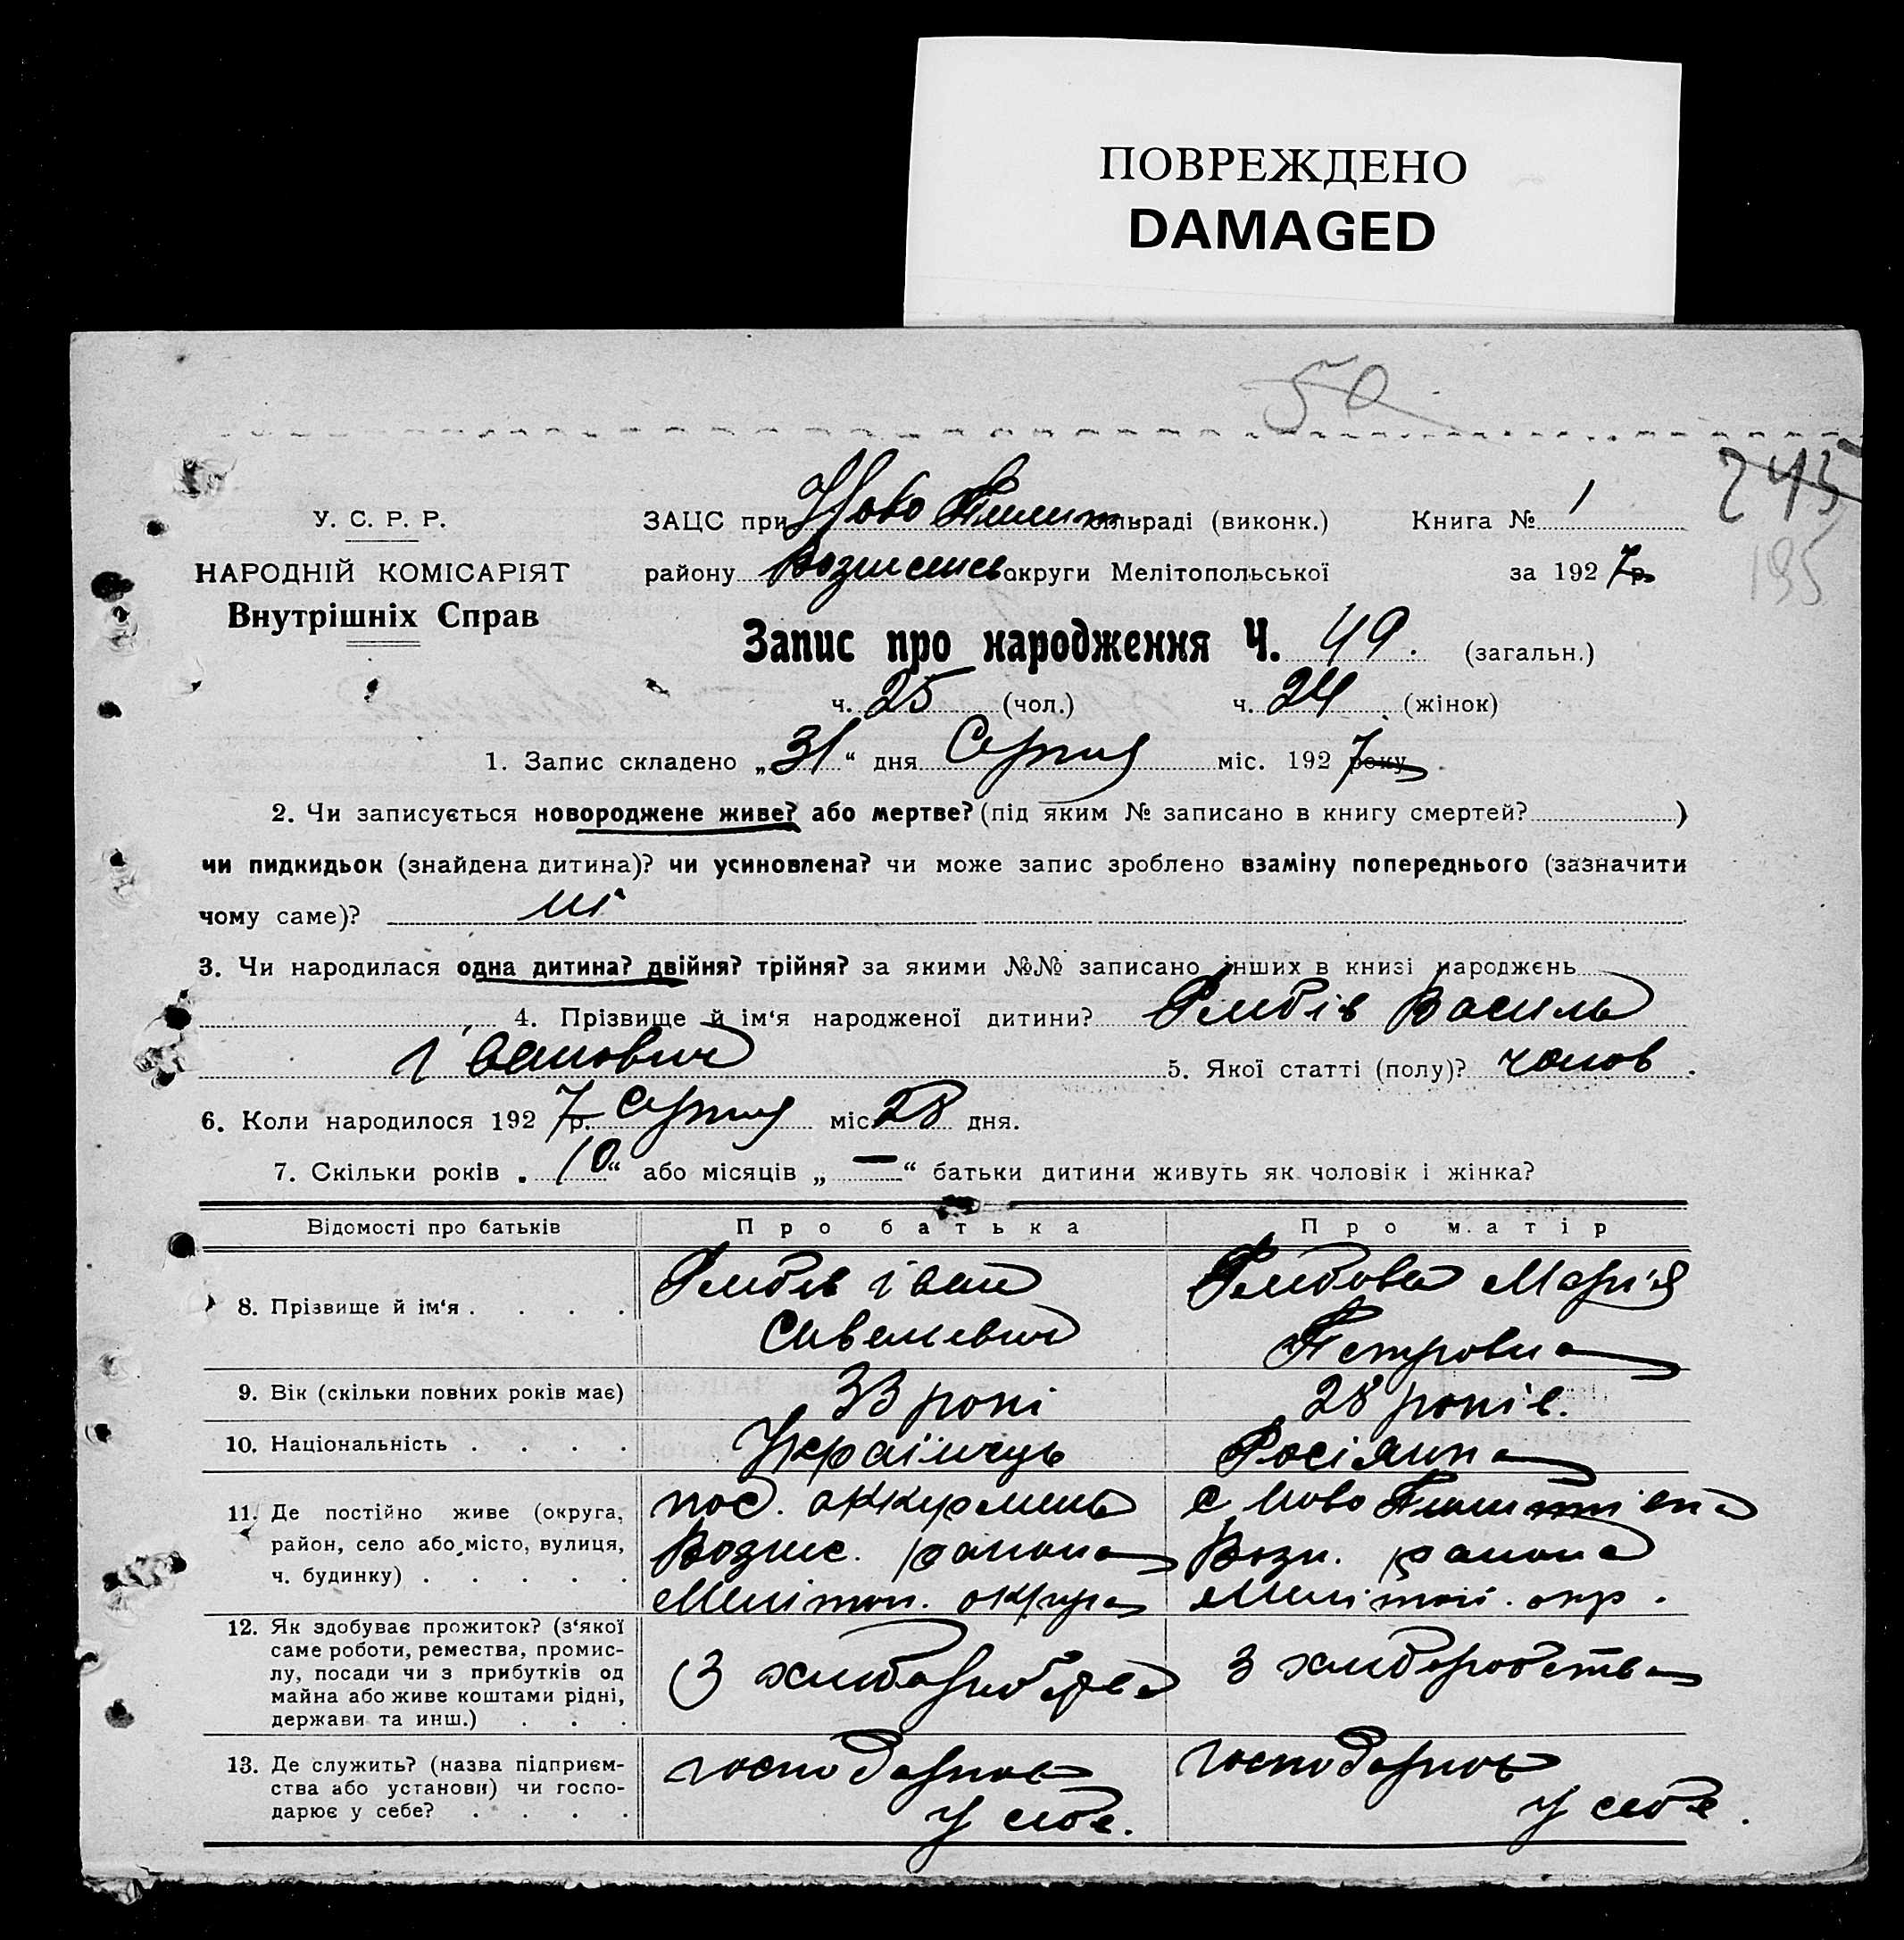 ПОВРЕЖДЕНО
DAMAGED
50
245
195
У. С. Р. Р.
НАРОДНІЙ КОМІСАРІЯТ
Внутрішніх Справ
ЗАЦС при Ново сільраді (виконк.) Книга № 1
району округи Мелітопольської за 1927 р.
Запис про народження Ч. 49. (загальн.)
ч. 25 (чол.) ч. 24 (жінок)
1. Запис складено „31“ дня Серпня міс. 1927 року
2. Чи записується новороджене живе? або мертве? (під яким № записано в книгу смертей? )
чи пидкидьок (знайдена дитина)? чи усиновлена? чи може запис зроблено взаміну попереднього (зазначити
чому саме)? ні
3. Чи народилася одна дитина? двійня? трійня? за якими №№ записано інших в книзі народжень
4. Прізвище й ім‘я народженої дитини? Василь
Іванович 5. Якої статті (полу)? чолов.
6. Коли народилося 1927 р. Серпня міс. 28 дня.
7. Скільки років „10“ або місяців „—“ батьки дитини живуть як чоловік і жінка?
Відомості про батьків Про батька Про матір
8. Прізвище й ім‘я . . . .
Іван
Савельевич
Марія
Петровна
9. Вік (скільки повних років має) 33 рокі 28 років.
10. Національність . . . . Українець Росіянка
11. Де постійно живе (округа,
район, село або місто, вулиця,
ч. будинку) . . . . .
пос. Аккермень
Вознес. района
Мелітоп. округа
с Ново
Возн. района
Мелітоп. окр.
12. Як здобуває прожиток? (з‘якої
саме роботи, ремества, промис-
лу, посади чи з прибутків од
майна або живе коштами рідні,
держави та инш.) . . .
З хлібаробства
З хлібаробства
13. Де служить? (назва підприєм-
ства або установи) чи госпо-
дарює у себе? . . . .
господарює
у себе.
господарює
у себе.